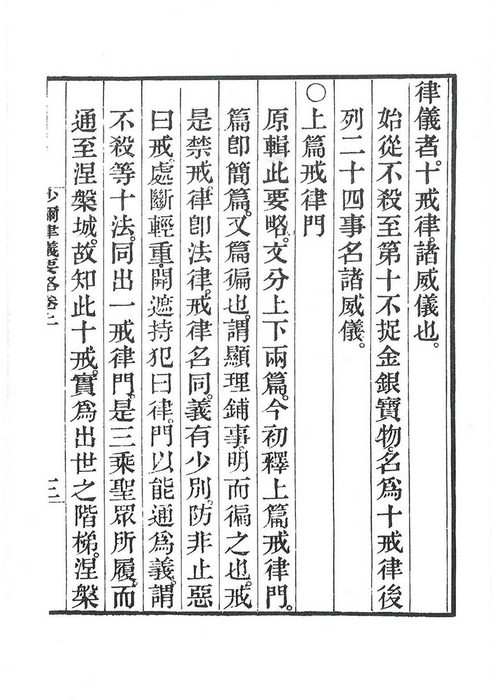 律儀者。十戒律。諸威儀也。
始從不殺。至第十不捉金銀寶物。名爲十戒律。後
列二十四事名諸威儀。
○上篇戒律門
原輯此要略。文分上下兩篇。今初釋上篇戒律門。
篇卽簡篇。又篇徧也。謂顯理鋪事。明而徧之也。戒
是禁戒。律卽法律。戒律名同。義有少別。防非止惡
曰戒。處斷輕重。開遮持犯曰律。門以能通爲義。謂
不殺等十法。同出一戒律門。是三乘聖眾所履。而
通至涅槃城。故知此十戒。實爲出世之階梯。涅槃
沙彌律儀要略卷上